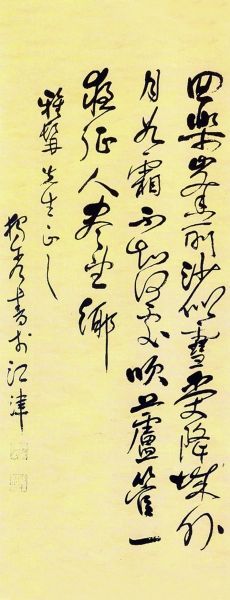 回樂峯前沙似雪受降城外
月如霜不知何處吹蘆管一
夜征人盡望鄉
雅 先生正之
獨秀書於江津